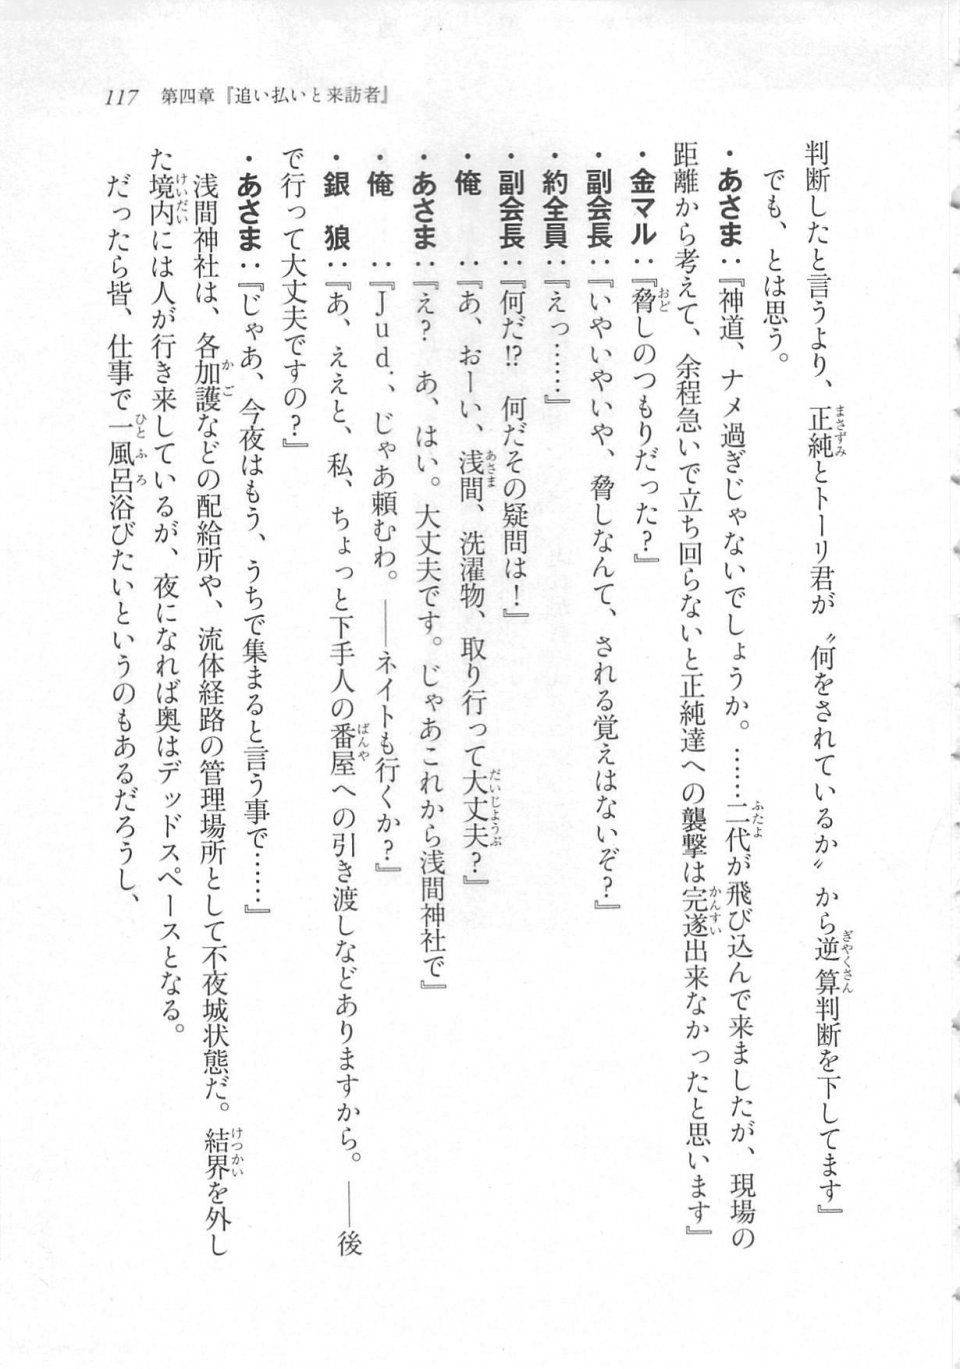 117 第四章『追い払いと来訪者』
判断したと言うより、正純とトーリ君が〝何をされているか〟から逆算判断を下してます』
でも、とは思う。
・あさま：『神道、ナメ過ぎじゃないでしょうか。……二代が飛び込んで来ましたが、現場の
距離から考えて、余程急いで立ち回らないと正純達への襲撃は完遂出来なかったと思います』
・金マル：『脅しのつもりだった？』
・副会長：『いやいやいや、脅しなんて、される覚えはないぞ？』
・約全員：『えっ……』
・副会長：『何だ!? 何だその疑問は！』
・俺　　：『あ、おーい、浅間、洗濯物、取り行って大丈夫？』
・あさま：『え？ あ、はい。大丈夫です。じゃあこれから浅間神社で』
・俺　　：『Ｊｕｄ．、じゃあ頼むわ。――ネイトも行くか？』
・銀　狼：『あ、ええと、私、ちょっと下手人の番屋への引き渡しなどありますから。――後
で行って大丈夫ですの？』
・あさま：『じゃあ、今夜はもう、うちで集まると言う事で……』
浅間神社は、各加護などの配給所や、流体経路の管理場所として不夜城状態だ。結界を外し
た境内には人が行き来しているが、夜になれば奥はデッドスペースとなる。
だったら皆、仕事で一風呂浴びたいというのもあるだろうし、